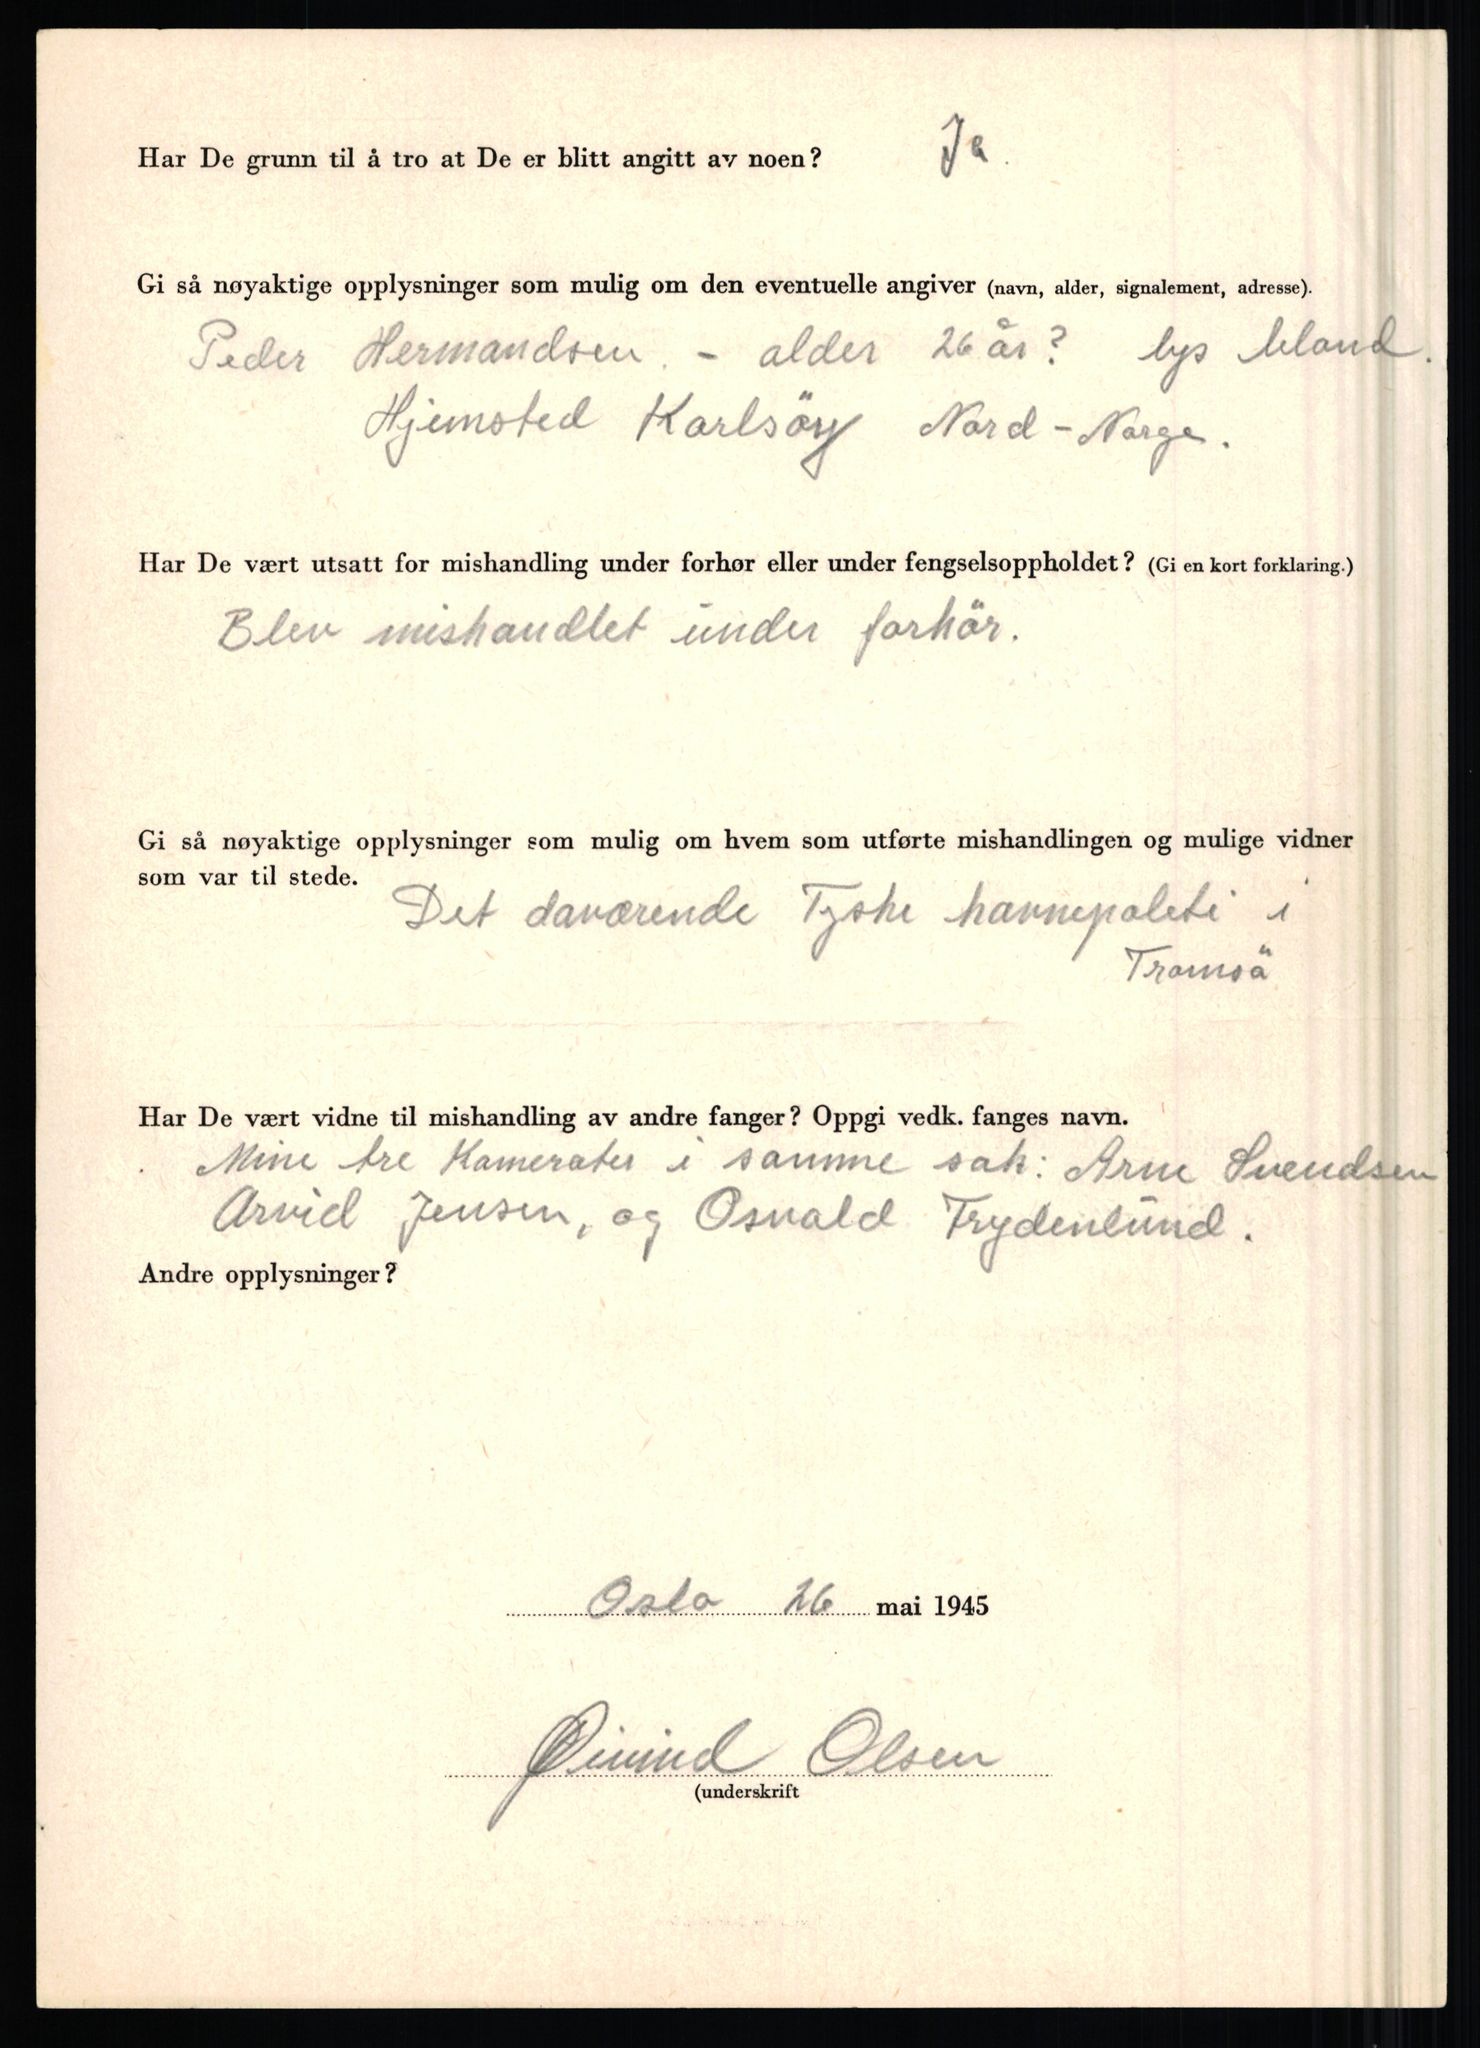 Har De grunn til å tro at De er blitt angitt av noen? Ja.
Gi så nøyaktige opplysninger som mulig om den eventuelle angiver (navn, alder, signalement, adresse).
Peder Hermandsen. – alder 26 år? lys blond.
Hjemsted Karlsöy Nord-Norge.
Har De vært utsatt for mishandling under forhør eller under fengselsoppholdet? (Gi en kort forklaring.)
Blev mishandlet under forhör.
Gi så nøyaktige opplysninger som mulig om hvem som utførte mishandlingen og mulige vidner
som var til stede.
Det daværende Tyske havnepoleti i
Tromsö
Har De vært vidne til mishandling av andre fanger? Oppgi vedk. fanges navn.
Mine tre Kamerater i samme sak: Arne Svendsen
Arvid Jensen, og Osvald Trydenlund.
Andre opplysninger?
Oslo 26 mai 1945
Øivind Olsen
(underskrift